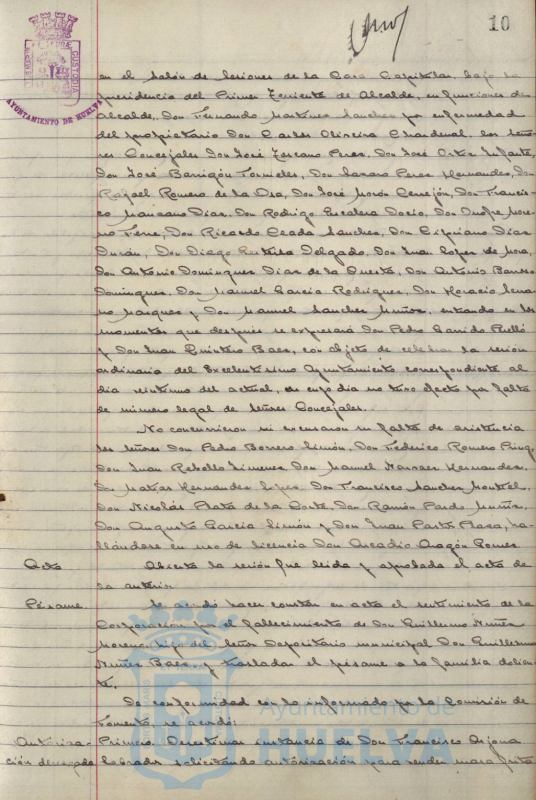 10
AYUNTAMIENTO DE HUELVA
CUSTODIA
en el Salón de Sesiones de la Casa Capitular, bajo la
presidencia del Primer Teniente de Alcalde, en funciones de
Alcalde, Don Fernando Martinez Sanchez por enfermedad
del propietario Don Carlos Oliveira Chardenal, los Seño-
res Concejales Don José Terrano Perez, Don José Ortiz Infante,
Don José Barrigón Tornieles, Don Lazaro Perez Hernandez, Don
Rafael Romero de la Osa, Don José Morón Cerejón, Don Francis-
co Manzano Diaz, Don Rodrigo Don Onofre More-
no Don Ricardo Sanchez, Don Cipriano Diaz
Durán, Don Diego Delgado, Don Juan Lopez de Mora,
Don Antonio Dominguez Diaz de la Don Antonio Barroso
Dominguez, Don Manuel Garcia Rodriguez, Don Horacio
Marquez y Don Manuel Sanchez Muñoz, entrando en los
momentos que después se expresará Don Pedro Garrido Perelló
y Don Juan Quintero Baez, con objeto de celebrar la sesión
ordinaria del Excelentisimo Ayuntamiento correspondiente al
dia veintiuno del actual, en cuyo dia no tuvo efecto por falta
de número legal de Señores Concejales.
No concurrieron ni excusaron su falta de asistencia
los señores Don Pedro Borrero Limón, Don Federico Romero
Don Juan Rebollo Jimenez, Don Manuel Narvaez Hernandez,
Matias Hernandez Lopez, Don Francisco Sanchez Montiel,
Don Nicolás Plata de la Corte, Don Ramón Pardo Muñiz,
Don Augusto Garcia Limón y Don Juan Plaza, ha-
llándose en uso de licencia Don Arcadio Aragón Gomez
Acta Abierta la sesión fue leida y aprobada el acta de
la anterior.
Pésame. Se acordó hacer constar en acta el sentimiento de la
Corporacion por el fallecimiento de Don Guillermo Nuñez
Moreno, hijo del Señor Depositario municipal Don Guillermo
Nuñez Baez, y trasladar el pésame a la familia dolien-
te.
De conformidad con lo informado por la Comisión de
Fomento, se acordó:
Autoriza- Primero. Desestimar instancia de Don Francisco Arjona
ción denegada Labrador solicitando autorización para vender masa frita
Ayuntamiento de
HUELVA